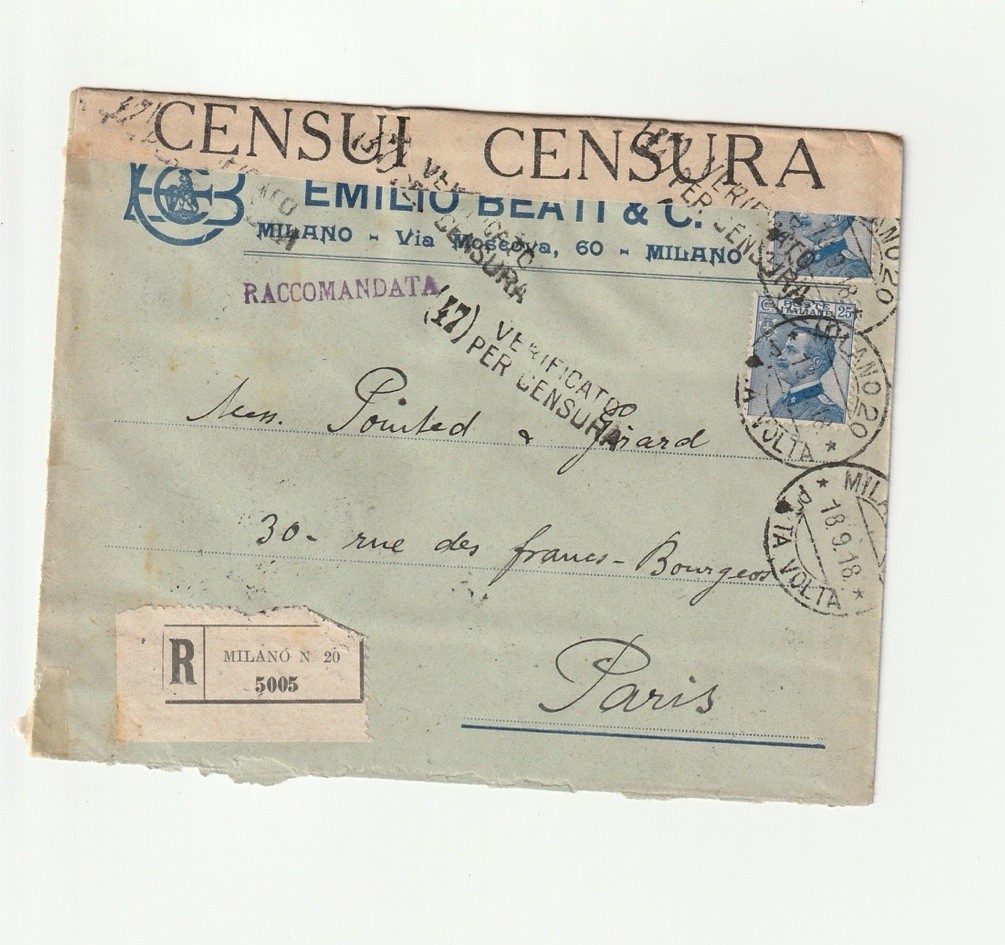 CENSUI CENSURA
EMILIO BEATI & C.
MILANO - Via Moscova, 60 - MILANO
RACCOMANDATA
(47) VERIFICATO
PER CENSURA
VERIFICATO
PER CENSURA
POSTE
ITALIANE
25
MILANO 20
VOLTA
MILA
18.9.18.
PTA VOLTA
Mess. & Girard
30 - rue des francs-Bourgeois
Paris
R
MILANO N 20
5005